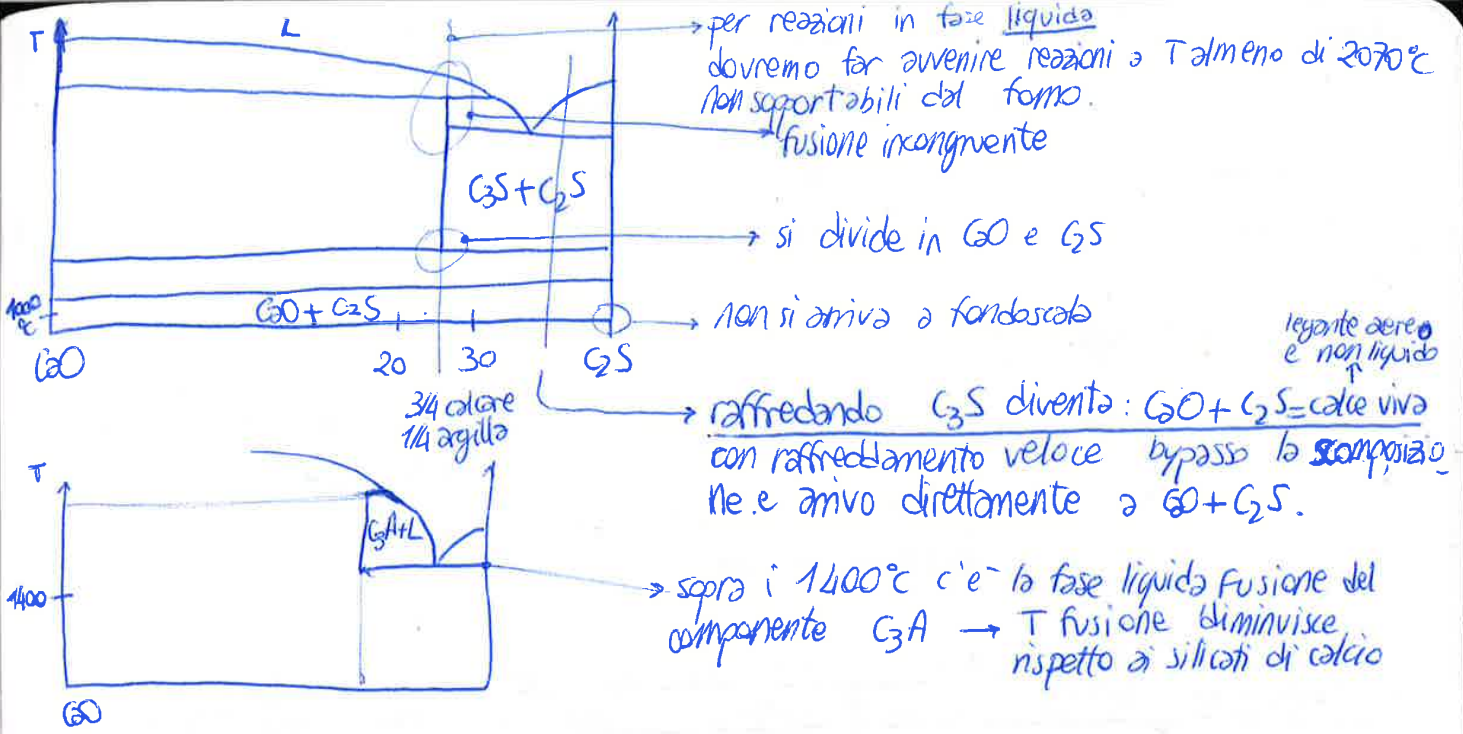 T
L
per reazioni in fase liquida
dovremo far avvenire reazioni a T almeno di 2070°C
non sopportabili dal forno.
fusione incongruente
C3S+C2S
si divide in CaO e C2S
1000
°C
CaO+C2S
non si arriva a fondoscala
CaO
20
30
C2S
legante aereo
e non liquido
3/4 calcare
1/4 argilla
raffredando C3S diventa: CaO+C2S=calce viva
con raffreddamento veloce bypasso la scomposizio-
ne e arrivo direttamente a CaO+C2S.
T
C3A+L
1400
sopra i 1400°C c'e' la fase liquida Fusione del
componente C3A → T fusione diminuisce
rispetto ai silicati di calcio
CaO